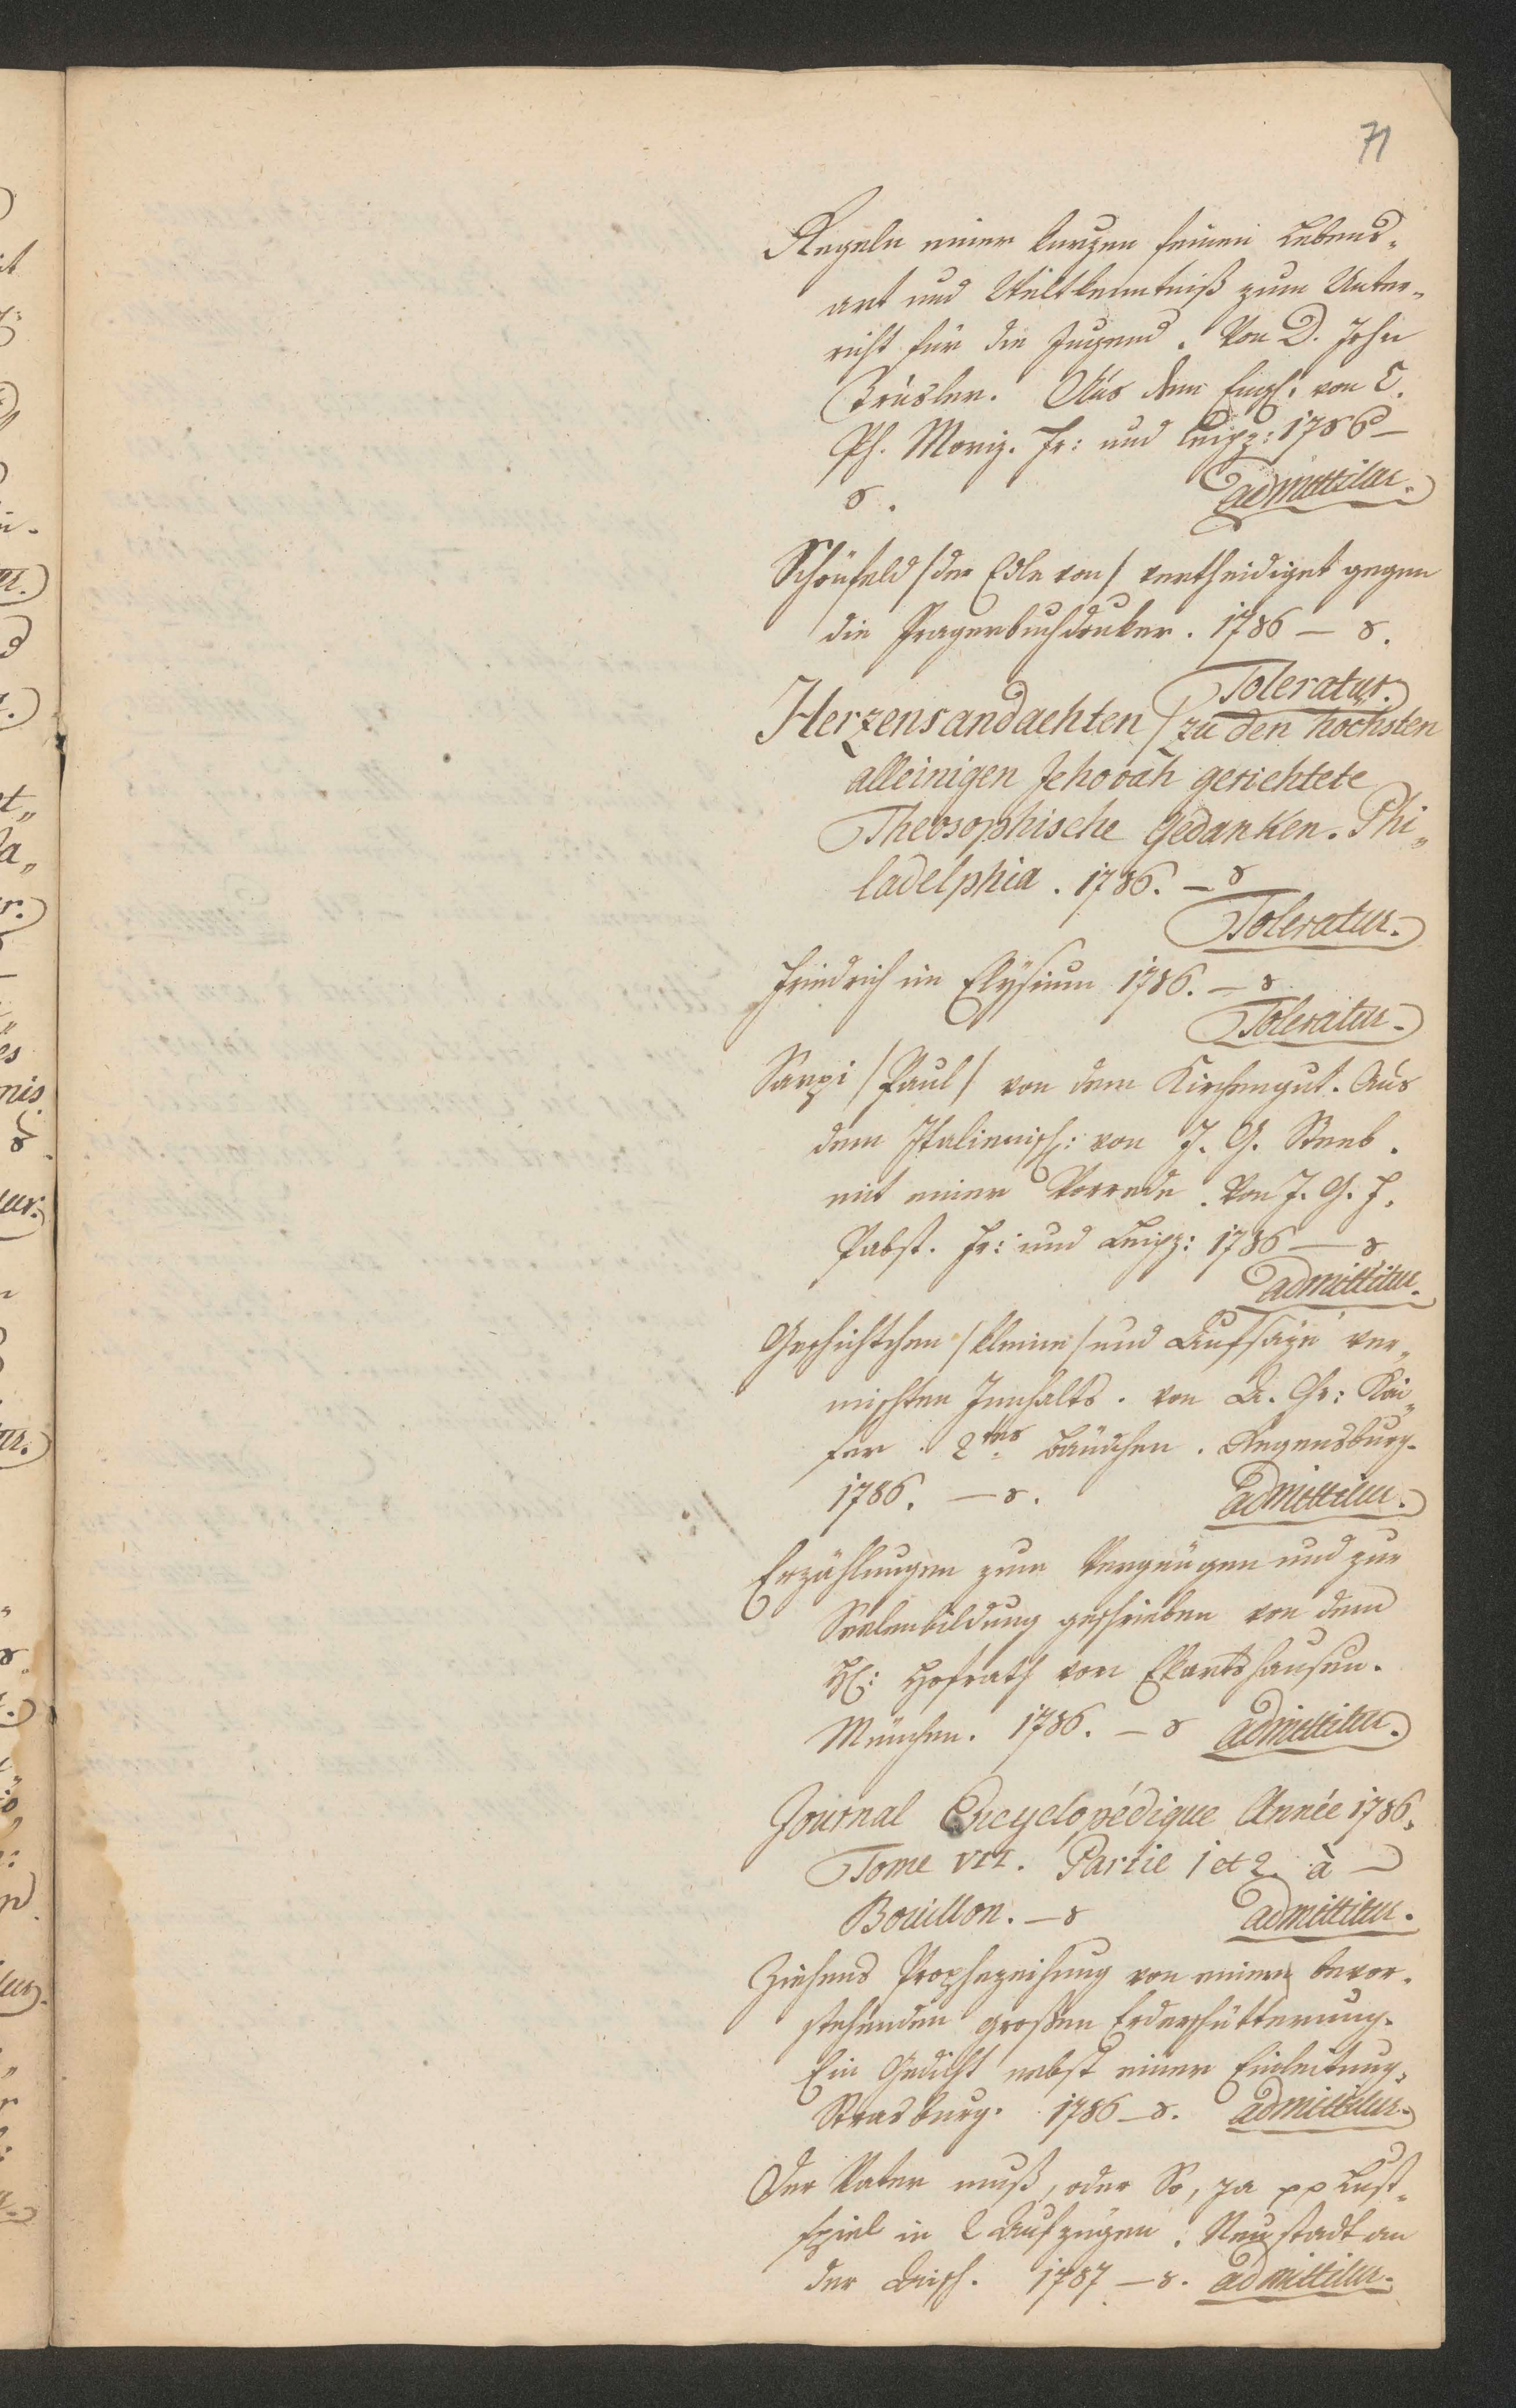 71
Regeln einer kurzen feinen Lebens-
art und Weltkenntniß zum Unter-
richt für die Jugend. Von D. John
Trusler. Aus dem Engl: von C.
Ph. Moriz. Fr: und Leipz: 1786 —
8. admittitur.
Schönfeld /der Edle von/ vertheidiget gegen
die Pragerbuchdruker. 1786 — 8.
Toleratur.
Herzensandachten / zu den höchsten
alleinigen Jehovah gerichtete
Theosophische Gedanken. Phi„
ladelphia. 1786. — 8
Toleratur.
Friedrich im Elysium 1786. — 8
Toleratur.
Sarpi /Paul/ von dem Kirchengut. Aus
dem Italienisch: von J. G. Steeb.
mit einer Vorrede. Von J. G. F.
Pabst. Fr: und Leipz: 1786 — 8
admittitur.
Geschichtchen /kleine/ und Aufsäze ver„
mischten Innhalts. von A. Chr: Kai„
ser. 2tes Bändchen. Regensburg.
1786. — 8. admittitur.
Erzählungen zum Vergnügen und zur
Seelenbildung geschrieben von dem
H: Hofrath von Ekartshausen.
München. 1786. — 8 admittitur.
Journal Encyclopédique Année 1786.
Tome VII. Partie 1 et 2. à —
Bouillon. — 8 admittitur.
Ziehens Prophezeihung von einer bevor-
stehenden großen Erderschütterung.
Ein Gedicht nebst einer Einleitung.
Strasburg. 1786 — 8. admittitur.
Der Vater muß, oder So, ja pp Lust-
spiel in 2 Aufzügen. Neustadt an
der Aisch. 1787 — 8. admittitur.